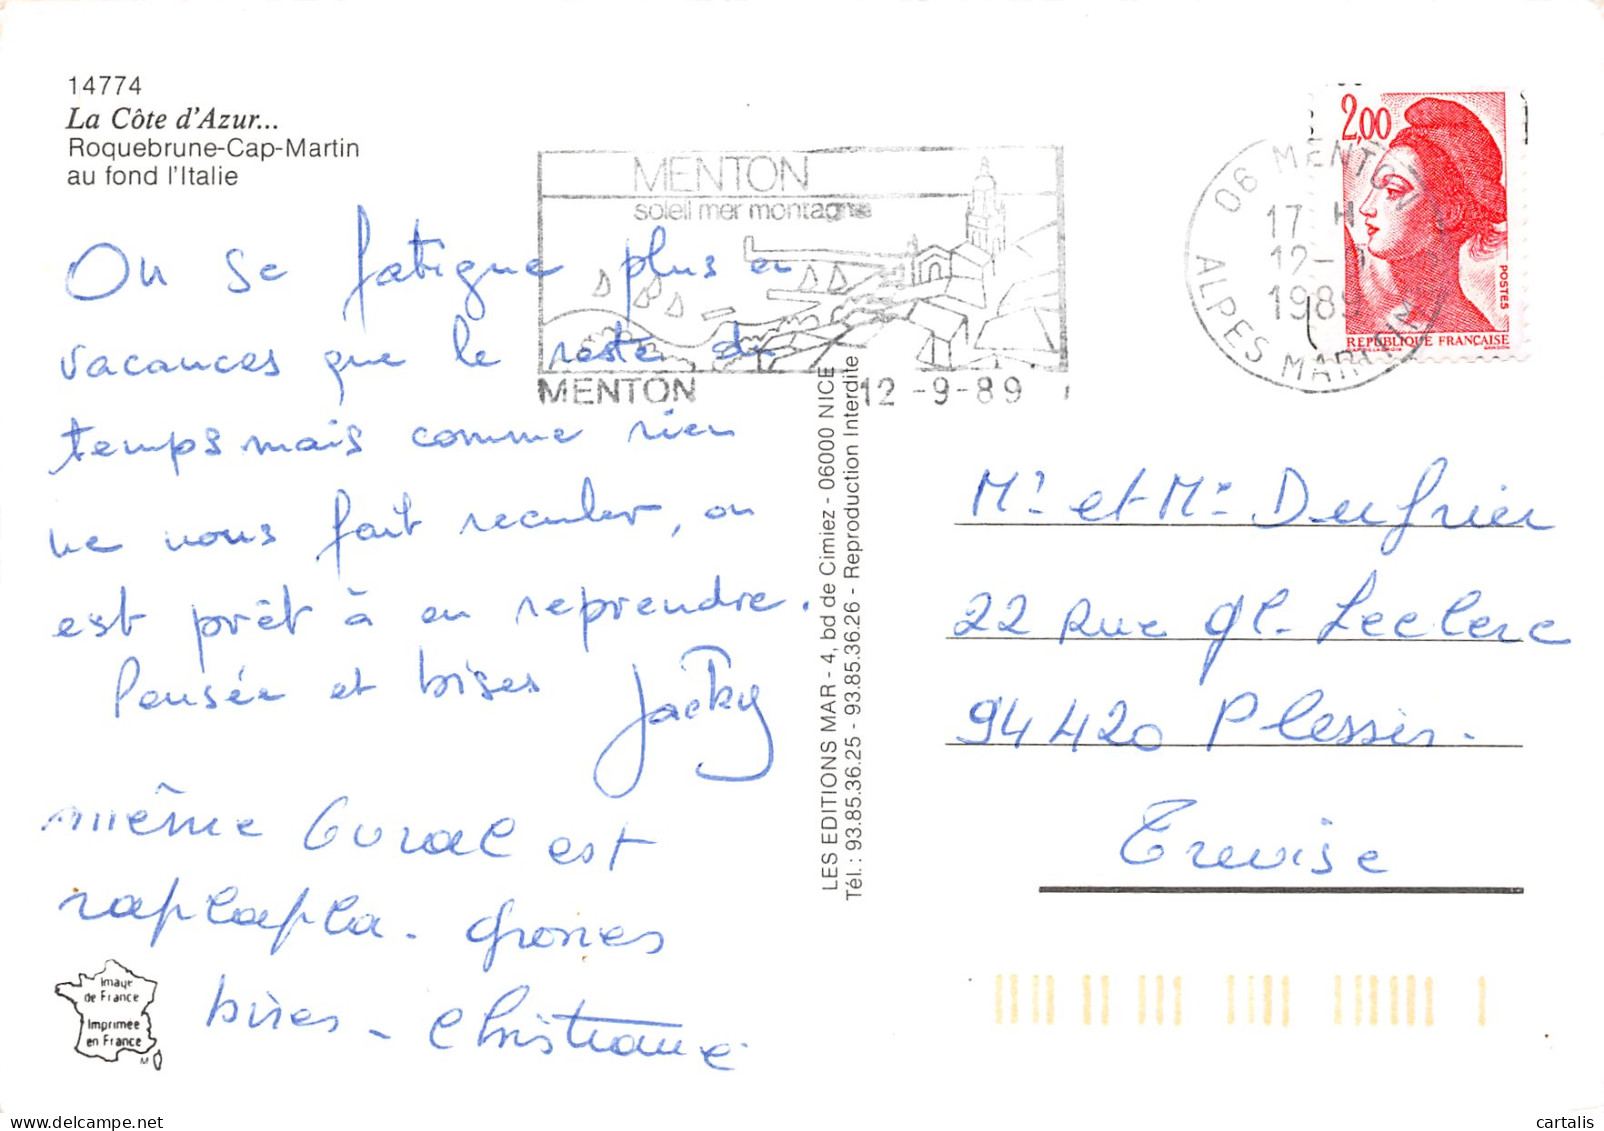 14774
La Côte d'Azur...
Roquebrune-Cap-Martin
au fond l'Italie
On se fatigue plus en
vacances que le reste du
temps mais comme rien
ne nous fait reculer, on
est prêt à en reprendre.
Pensée et bises Jacky
même Gural est
raplapla. Grosses
bises - Christiane
Image
de France
Imprimée
en France
M
MENTON
soleil mer montagne
MENTON 12-9-89
LES EDITIONS MAR - 4, bd de Cimiez - 06000 NICE
Tél.: 93.85.36.25 - 93.85.36.26 - Reproduction Interdite
06 MENTON
17 H
12-9
1989
ALPES MARITIMES
2,00
POSTES
REPUBLIQUE FRANÇAISE
Mr et Me Dufrier
22 Rue Gl. Leclerc
94420 Plessis-
Trevise
cartalis